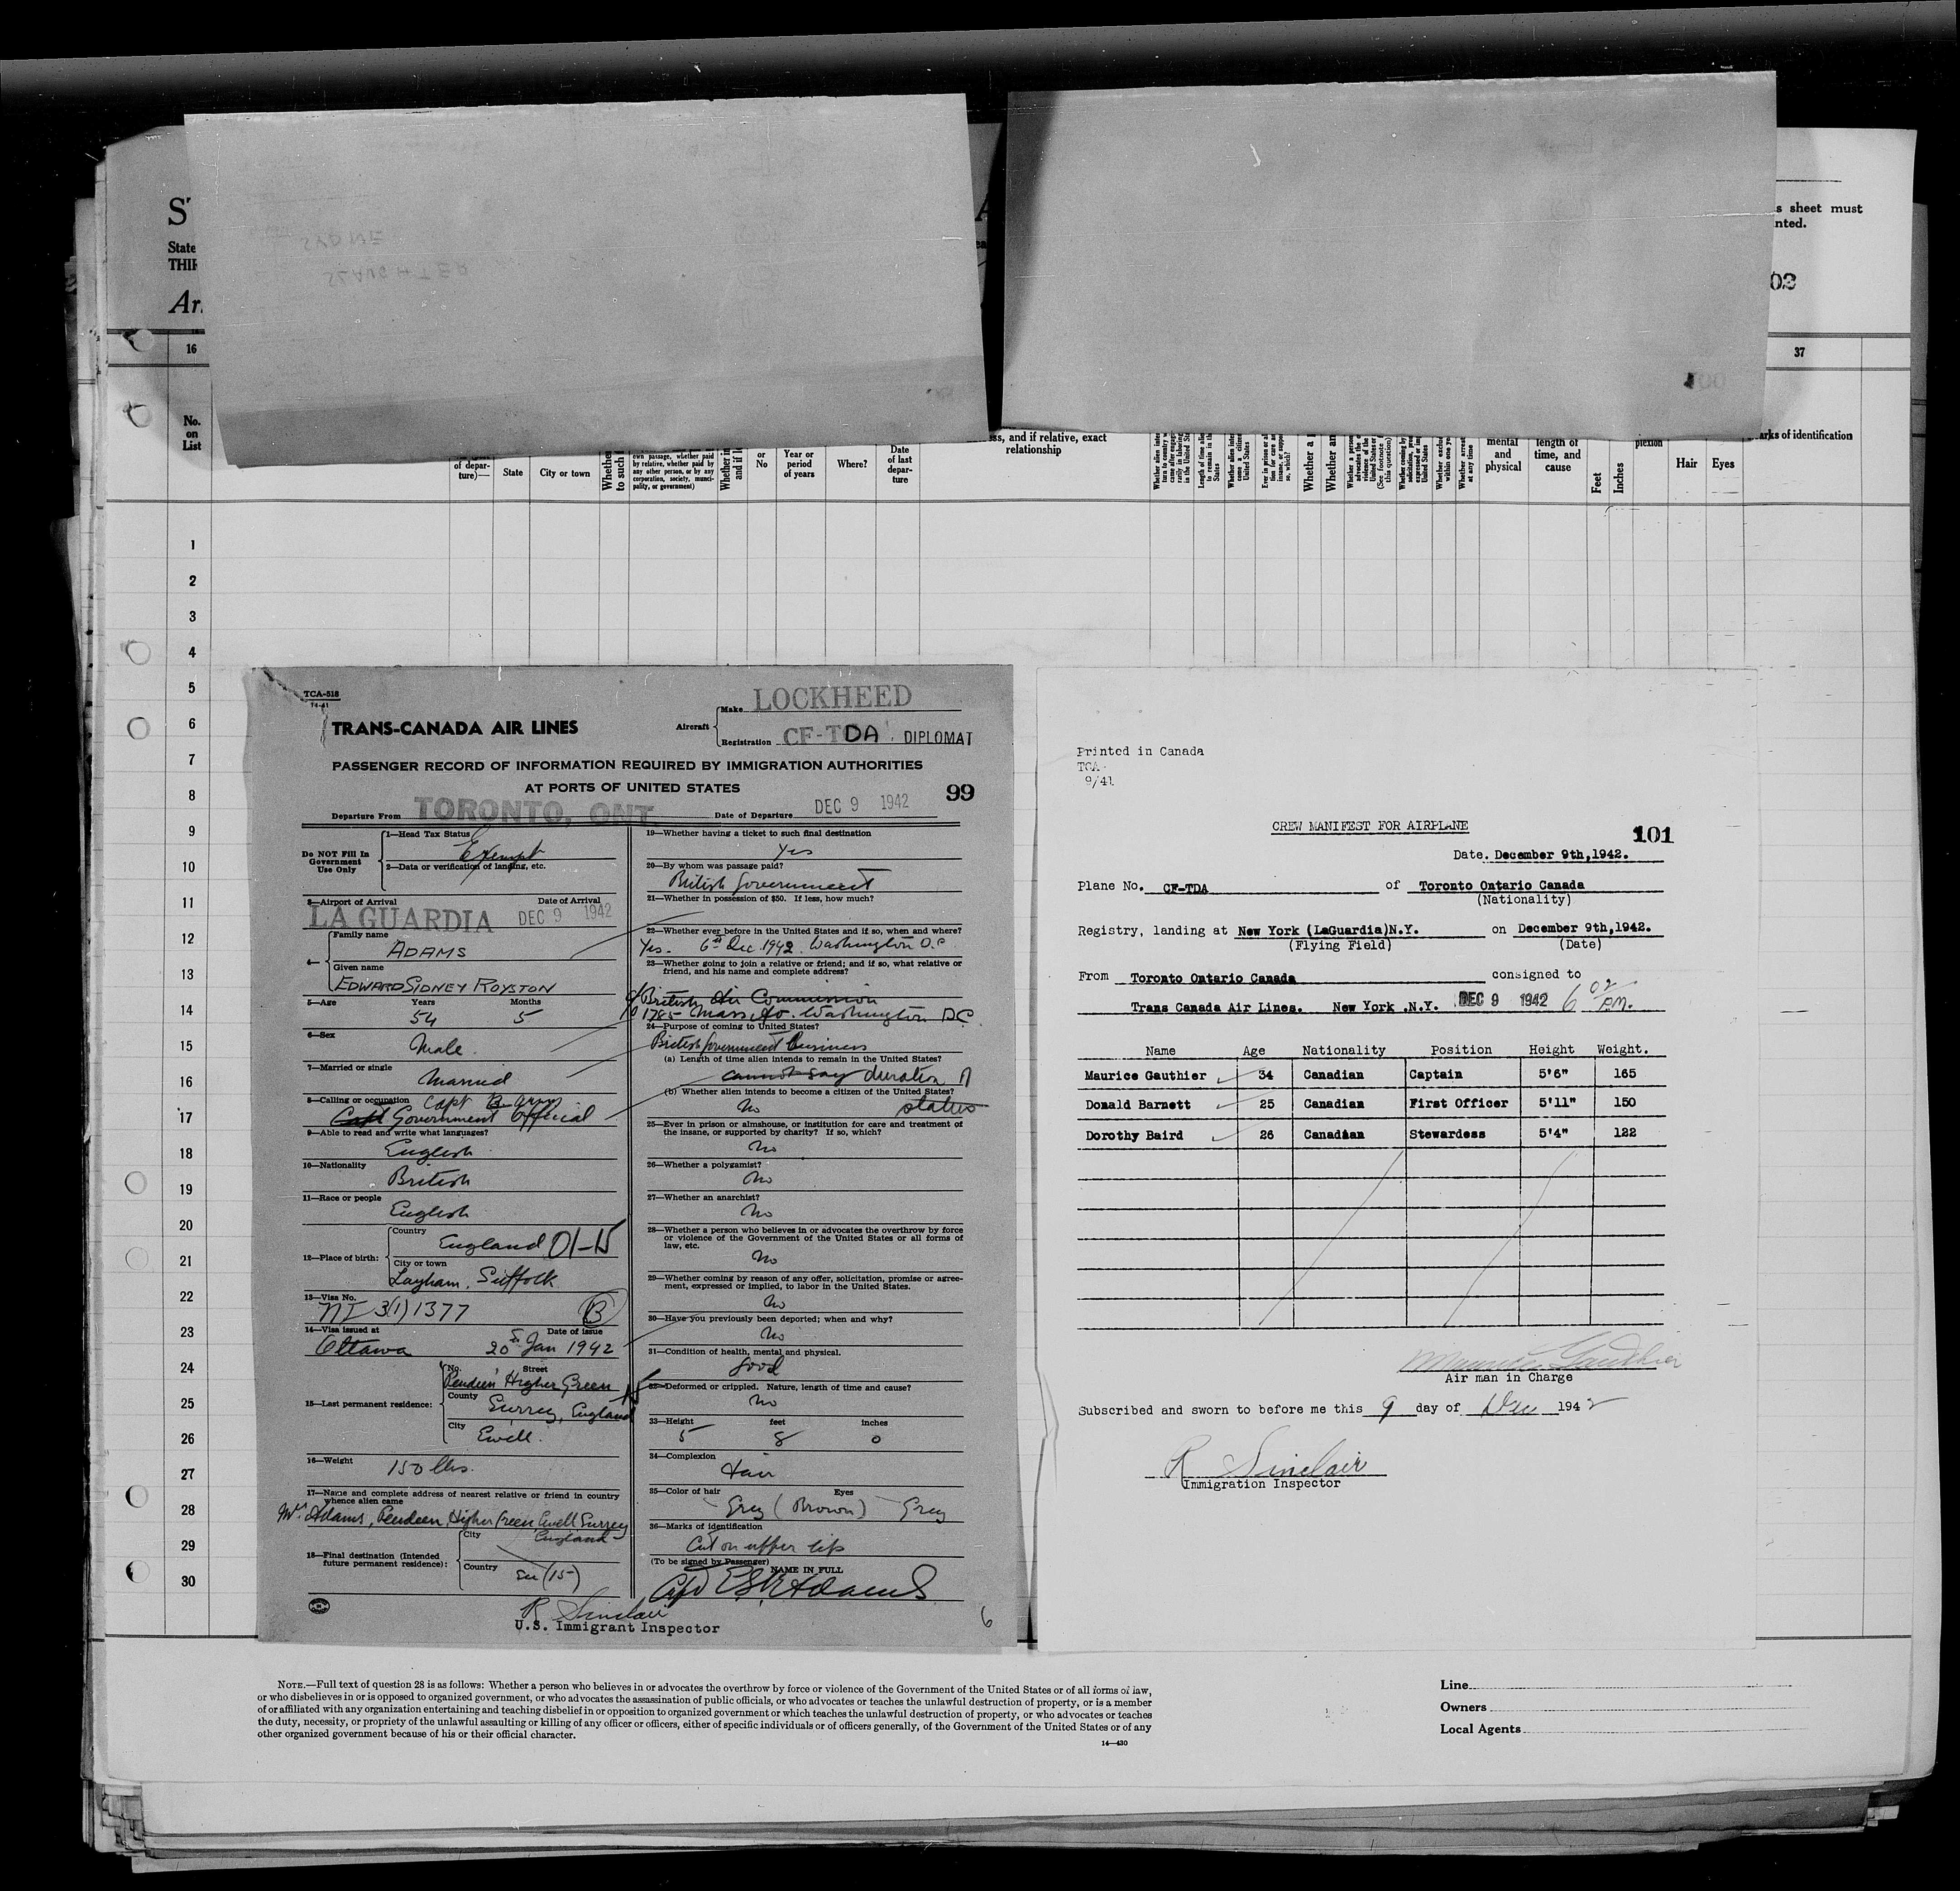 s sheet must
nted.
State
THIR
02
16
37
No.
on
List
of depar-
ture)—
State
City or town
own passage, whether paid
by relative, whether paid by
any other person, or by any
corporation, society, munci-
pality, or government)
or
No
Year or
period
of years
Where?
Date
of last
depar-
ture
ss, and if relative, exact
relationship
mental
and
physical
length of
time, and
cause
Feet
Inches
plexion
Hair
Eyes
arks of identification
1
2
3
4
5
6
7
8
9
10
11
12
13
14
15
16
17
18
19
20
21
22
23
24
25
26
27
28
29
30
TCA-518
TRANS-CANADA AIR LINES
Aircraft
Make LOCKHEED
Registration CF-TDA DIPLOMAT
PASSENGER RECORD OF INFORMATION REQUIRED BY IMMIGRATION AUTHORITIES
AT PORTS OF UNITED STATES
99
Departure From TORONTO, ONT. Date of Departure DEC 9 1942
Do NOT Fill In
Government
Use Only
1—Head Tax Status
Exempt
2—Data or verification of landing, etc.
3—Airport of Arrival Date of Arrival
LA GUARDIA DEC 9 1942
4—
Family name
ADAMS
Given name
EDWARD SIDNEY ROYSTON
5—Age Years Months
54 5
6—Sex
Male
7—Married or single
Married
8—Calling or occupation Capt
Capt Government Official
9—Able to read and write what languages?
English
10—Nationality
British
11—Race or people
English
12—Place of birth:
Country
England 01-15
City or town
Layham, Suffolk
13—Visa No.
NI 3(1) 1377 B
14—Visa issued at Date of issue
Ottawa 20th Jan 1942
15—Last permanent residence:
No. Street
Pendeen Higher Green
County
Surrey, England
City
Ewell.
16—Weight 150 lbs.
17—Name and complete address of nearest relative or friend in country
whence alien came
Mrs. Adams, Pendeen, Higher Green Ewell Surrey
England
18—Final destination (Intended
future permanent residence):
City
Country
19—Whether having a ticket to such final destination
Yes
20—By whom was passage paid?
British Government
21—Whether in possession of $50. If less, how much?
22—Whether ever before in the United States and if so, when and where?
Yes. 6th Dec 1942. Washington D.C
23—Whether going to join a relative or friend; and if so, what relative or
friend, and his name and complete address?
British Air Commission
1785 Mass Av. Washington DC
24—Purpose of coming to United States?
British Government business
(a) Length of time alien intends to remain in the United States?
cannot say duration of
(b) Whether alien intends to become a citizen of the United States?
No status
25—Ever in prison or almshouse, or institution for care and treatment of
the insane, or supported by charity? If so, which?
No
26—Whether a polygamist?
No
27—Whether an anarchist?
No
28—Whether a person who believes in or advocates the overthrow by force
or violence of the Government of the United States or all forms of
law, etc.
No
29—Whether coming by reason of any offer, solicitation, promise or agree-
ment, expressed or implied, to labor in the United States.
No
30—Have you previously been deported; when and why?
No
31—Condition of health, mental and physical.
Good
32—Deformed or crippled. Nature, length of time and cause?
No
33—Height feet inches
5 8 0
34—Complexion
Fair
35—Color of hair Eyes
Grey (Brown) Grey
36—Marks of identification
Cut on upper lip
(To be signed by Passenger)
NAME IN FULL
Capt E S R Adams
R Sinclair
U.S. Immigrant Inspector
6
Printed in Canada
TCA
9/41
CREW MANIFEST FOR AIRPLANE
101
Date. December 9th,1942.
Plane No. CF-TDA of Toronto Ontario Canada
(Nationality)
Registry, landing at New York (LaGuardia)N.Y. on December 9th,1942.
(Flying Field) (Date)
From Toronto Ontario Canada consigned to
Trans Canada Air Lines. New York .N.Y. DEC 9 1942 6 02 P.M.
Name Age Nationality Position Height Weight.
Maurice Gauthier 34 Canadian Captain 5'6" 165
Donald Barnett 25 Canadian First Officer 5'11" 150
Dorothy Baird 26 Canadian Stewardess 5'4" 122
Maurice Gauthier
Air man in Charge
Subscribed and sworn to before me this 9 day of Dec 1942
R Sinclair
Immigration Inspector
NOTE.—Full text of question 28 is as follows: Whether a person who believes in or advocates the overthrow by force or violence of the Government of the United States or of all forms of law,
or who disbelieves in or is opposed to organized government, or who advocates the assassination of public officials, or who advocates or teaches the unlawful destruction of property, or is a member
of or affiliated with any organization entertaining and teaching disbelief in or opposition to organized government or which teaches the unlawful destruction of property, or who advocates or teaches
the duty, necessity, or propriety of the unlawful assaulting or killing of any officer or officers, either of specific individuals or of officers generally, of the Government of the United States or of any
other organized government because of his or their official character.
14—430
Line
Owners
Local Agents